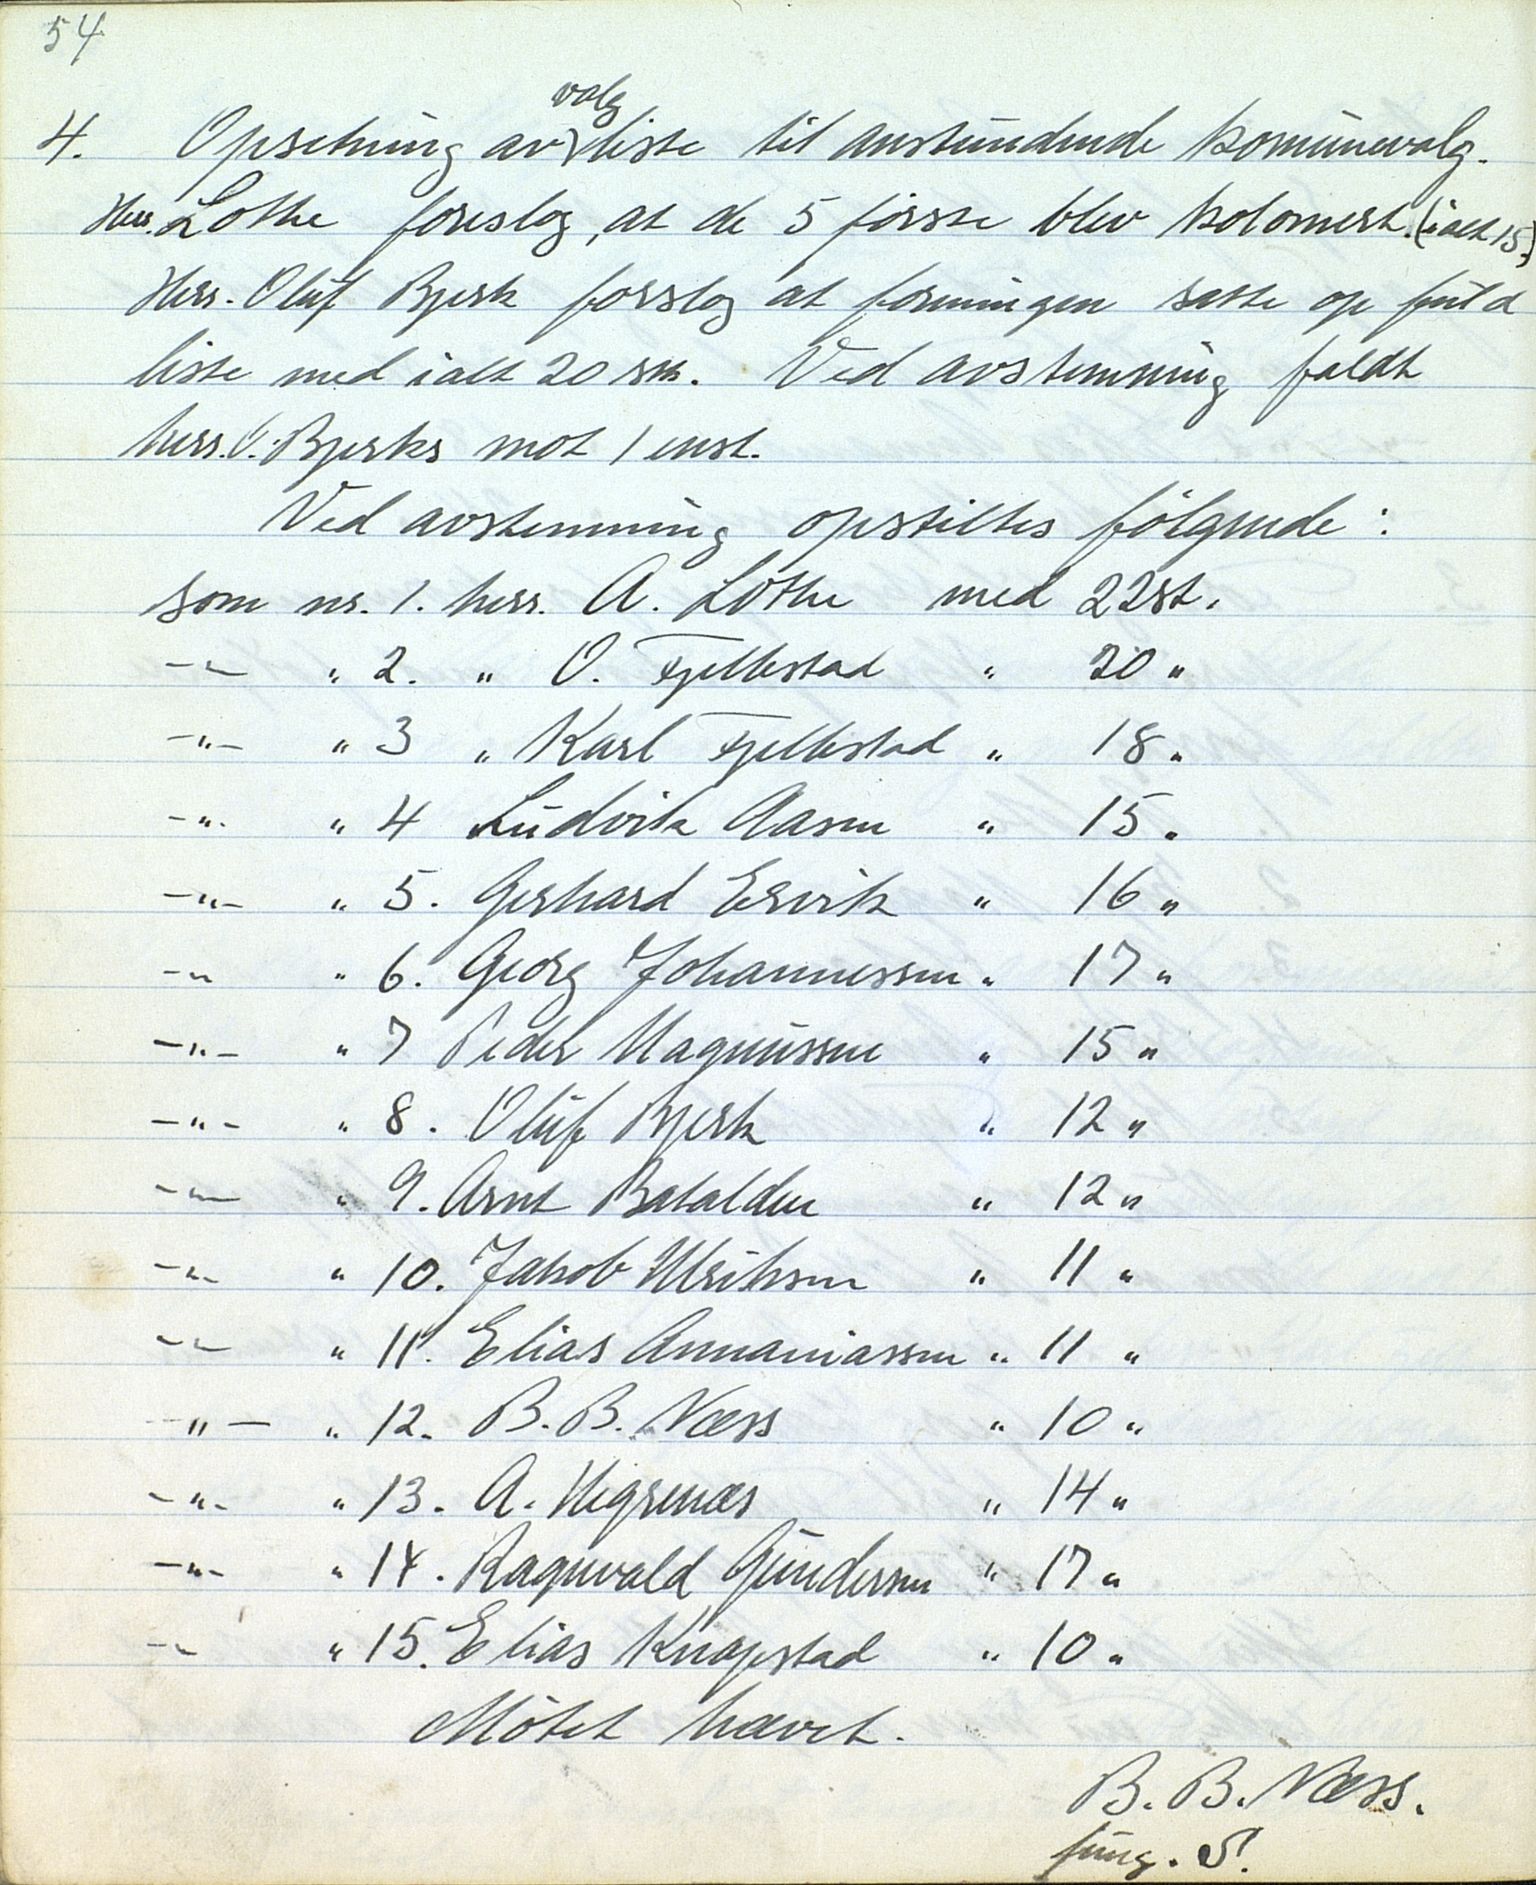 54
valg
4. Opsetning av liste til anstundende komunevalg.
Herr. Lothe foreslog, at de 5 første blev kolomert. (ialt 15)
Herr. Oluf Bjerk forslog at foreningen satte op fuld
liste med ialt 20 stk. Ved avstemning faldt
herr. O. Bjerks mot 1 enst.
Ved avstemning opstiltes følgende:
som nr. 1. herr. A. Lothe med 22 st.
—"— " 2. " O. Fjellestad " 20 "
—"— " 3 " Karl Fjellestad " 18 "
—"— " 4 Ludvik Aasen " 15 "
—"— " 5. Gerhard Ervik " 16 "
—"— " 6. Georg Johannessen " 17 "
—"— " 7 Peder Magnussen " 15 "
—"— " 8. Oluf Bjerk " 12 "
—"— " 9. Arnt Batalden " 12 "
—"— " 10. Jakob Ulriksen " 11 "
—"— " 11. Elias Annaniassen " 11 "
—"— " 12. B. B. Næss " 10 "
—"— " 13. A. Hegrenæs " 14 "
—"— " 14. Ragnvald Gundersen " 17 "
—"— " 15. Elias Knapstad " 10 "
Møtet hævet.
B. B. Næss.
fung. S.